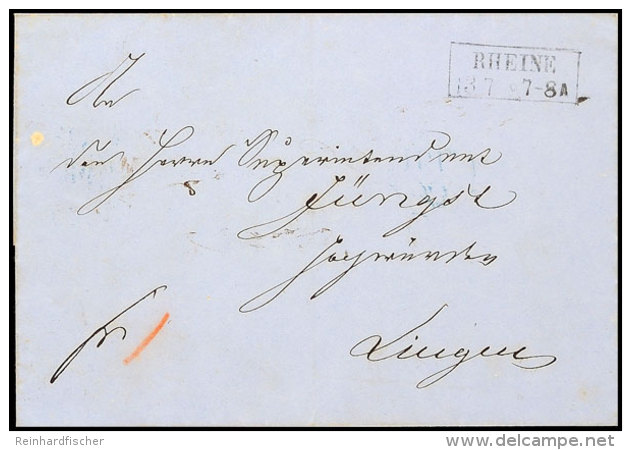 RHEINE
13 7 * 7-8A
An
den Herrn Superintendent
Jüngst
Hochwürden
fr
Lingen
Reinhardfischer
delcampe.net